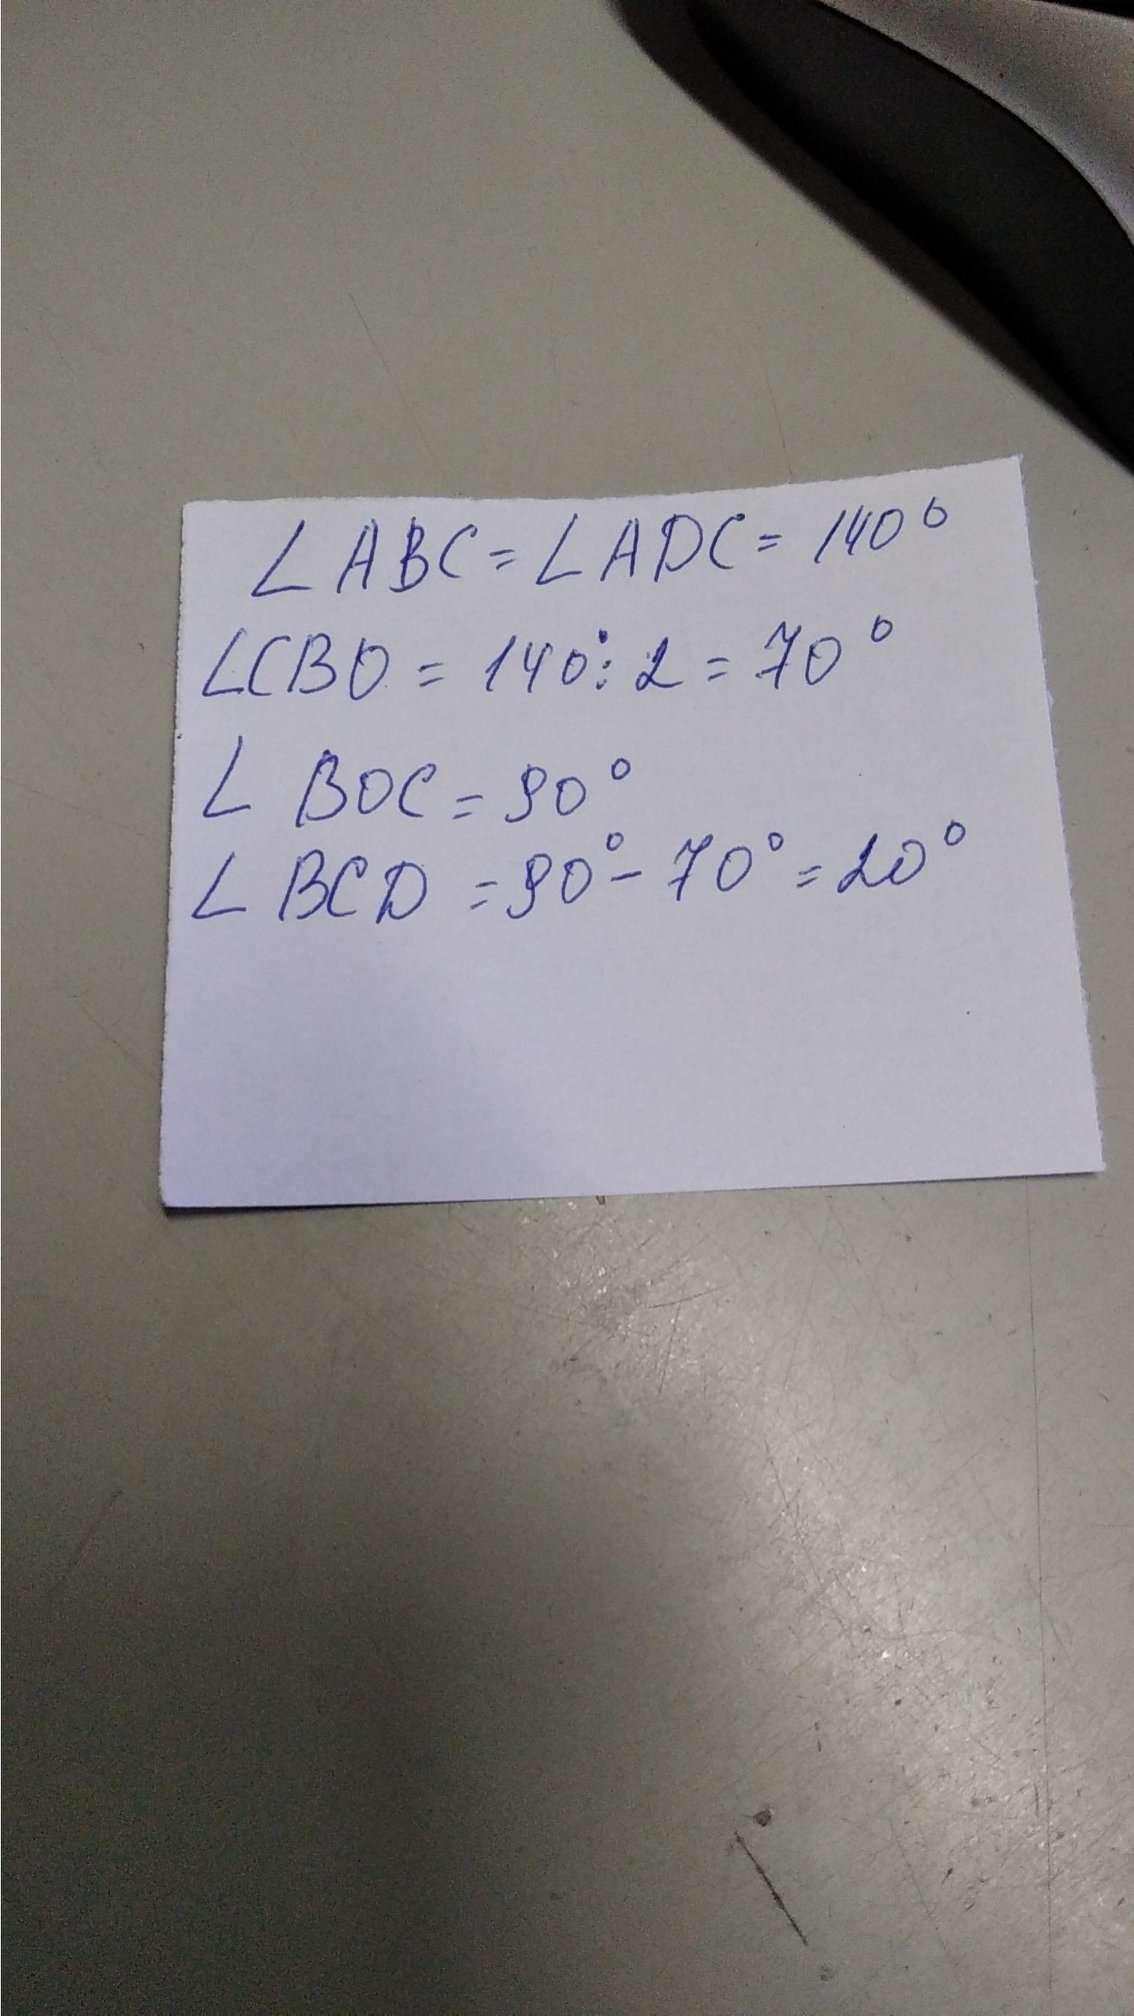 ∠ABC = ∠ADC = 140°
∠CBO = 140° : 2 = 70°
∠ BOC = 90°
∠ BCD = 90° - 70° = 20°